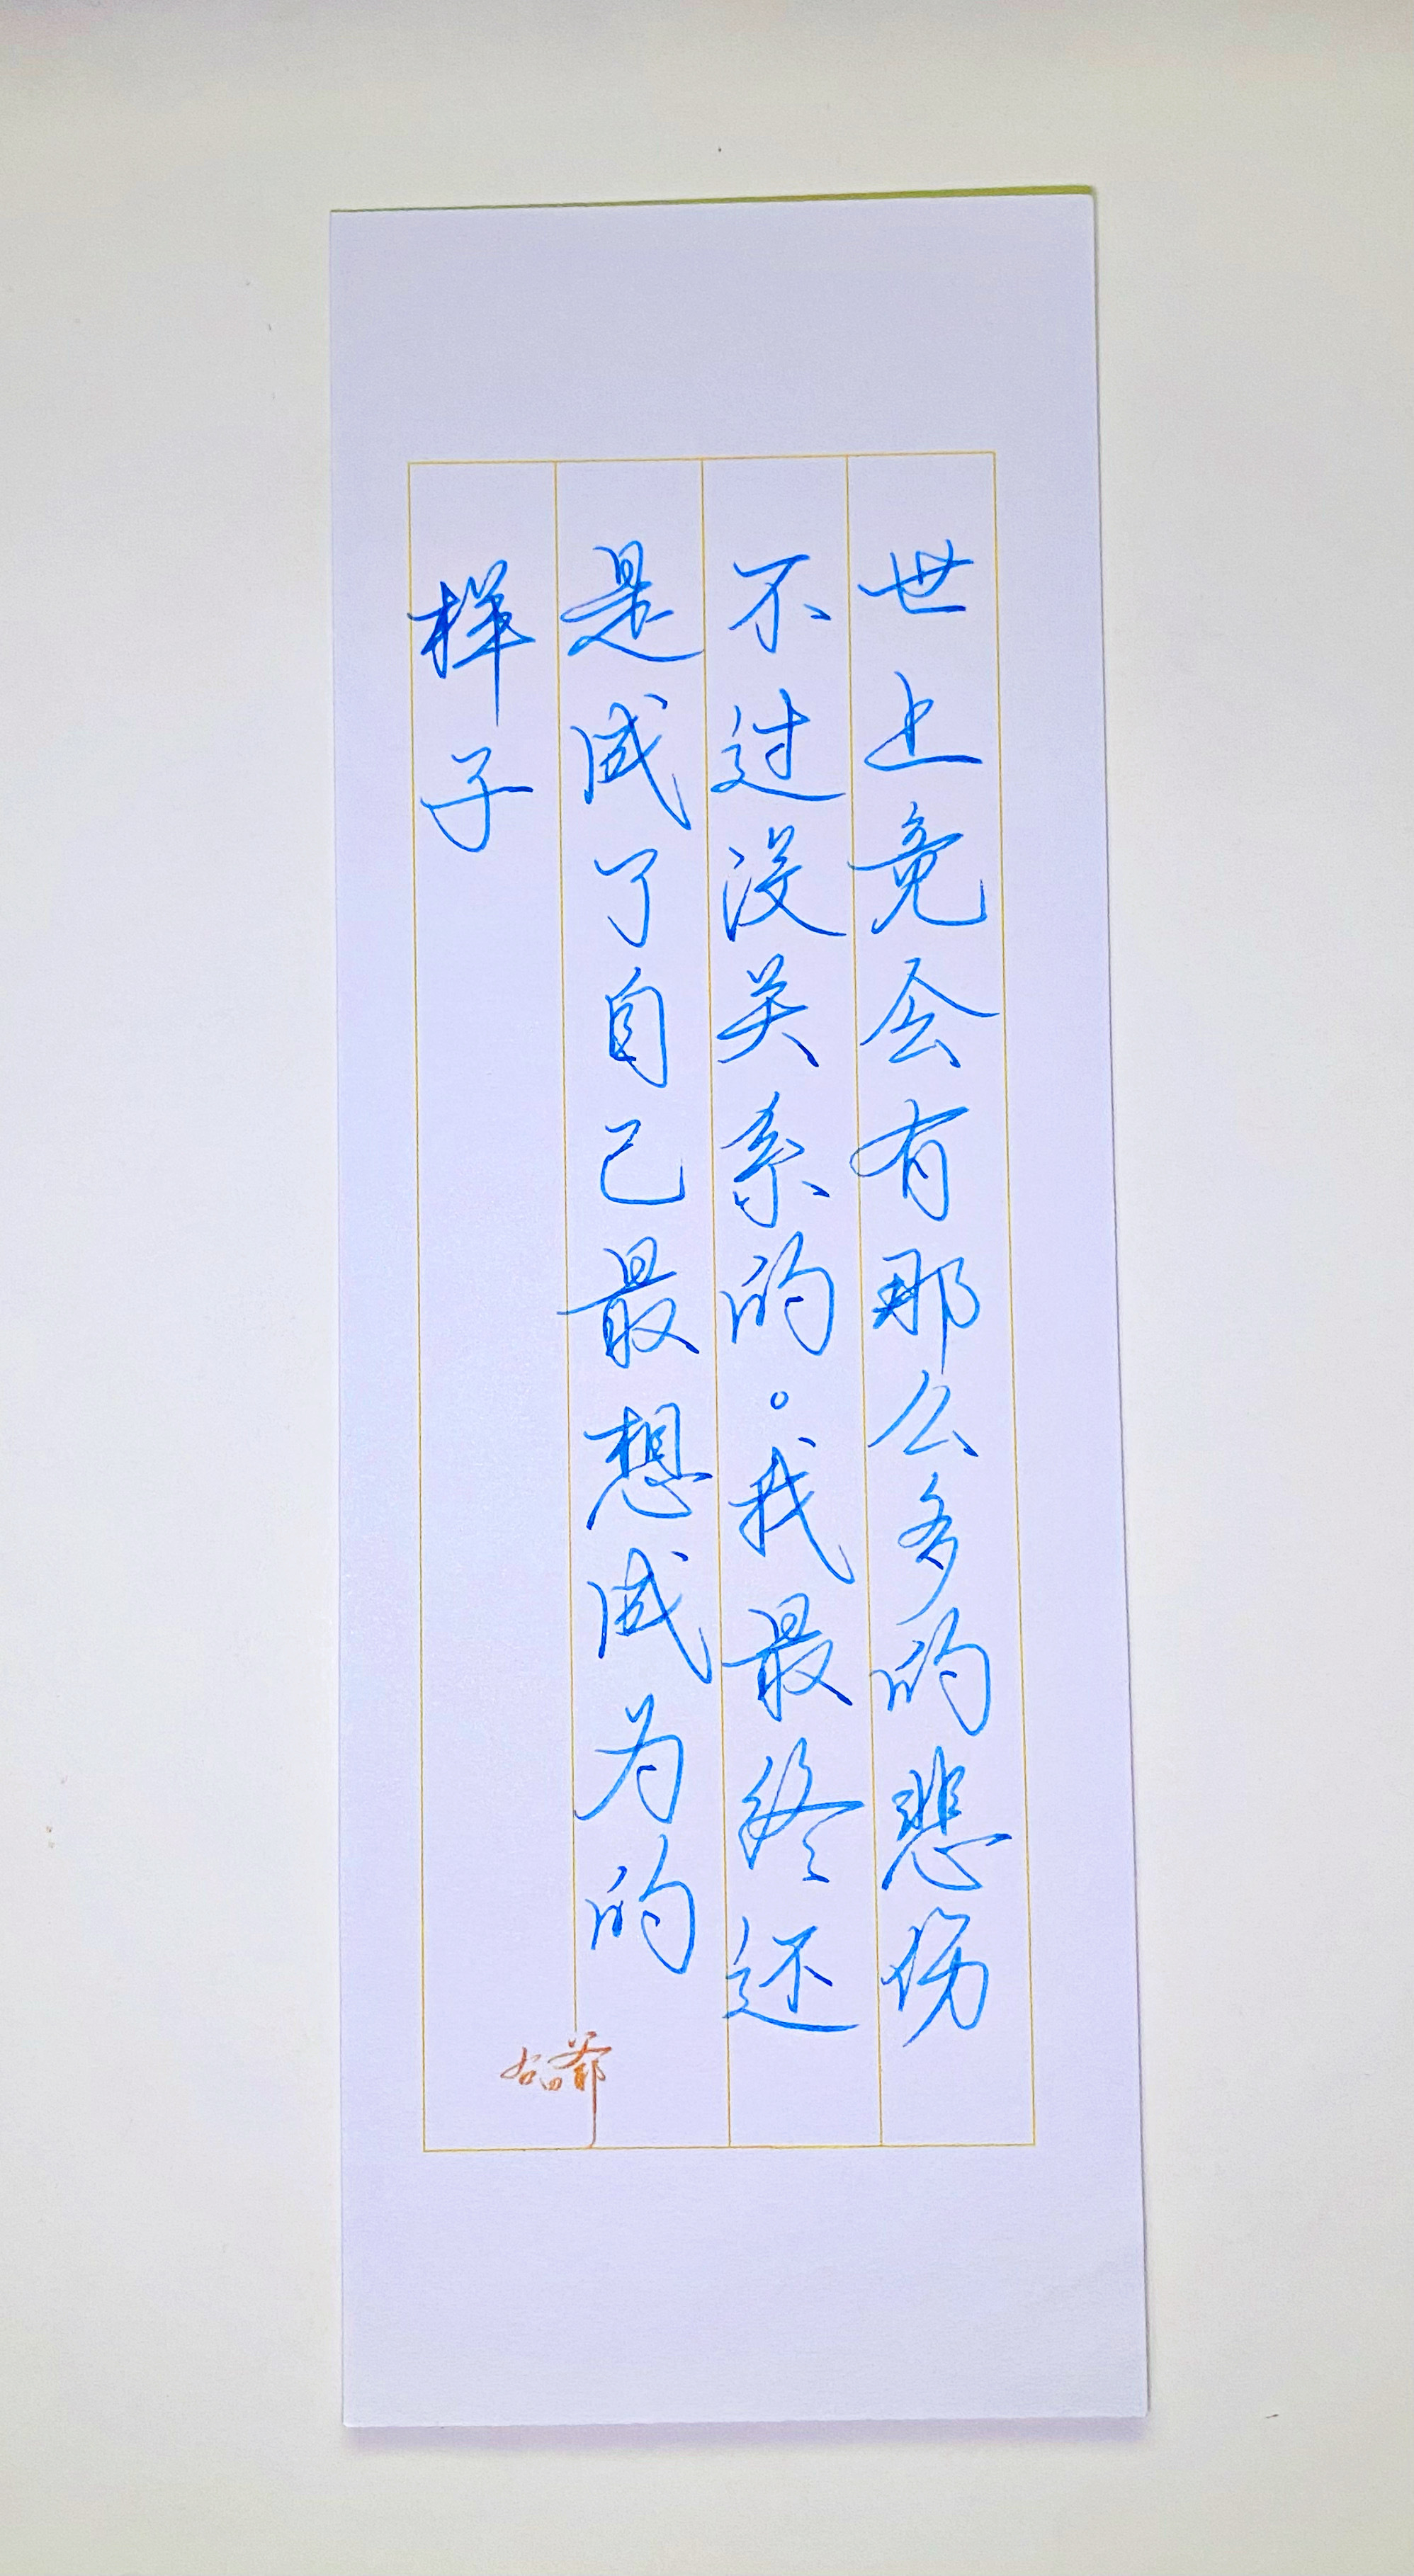 世上竟会有那么多的悲伤
不过没关系的。我最终还
是成了自己最想成为的
样子